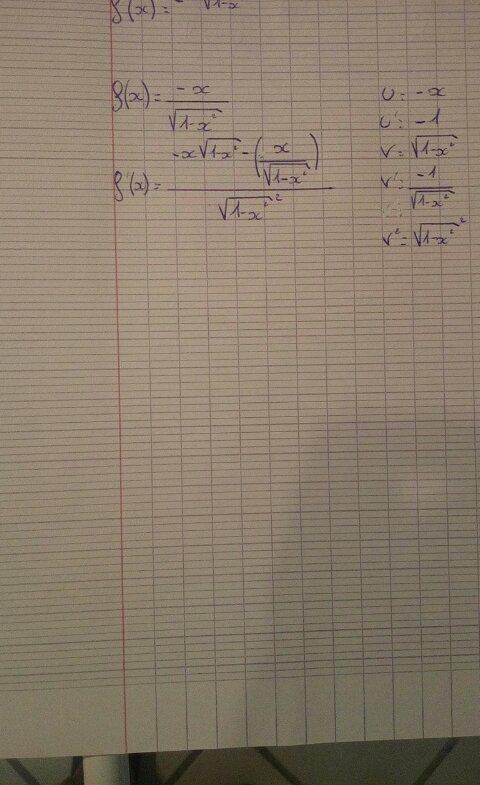 f(x) = √1-x
f(x) = -x / √1-x²
f'(x) = -x√1-x² - (x / √1-x²) / √1-x²²
u = -x
u' = -1
v = √1-x²
v' = -1 / √1-x²
v² = √1-x²²